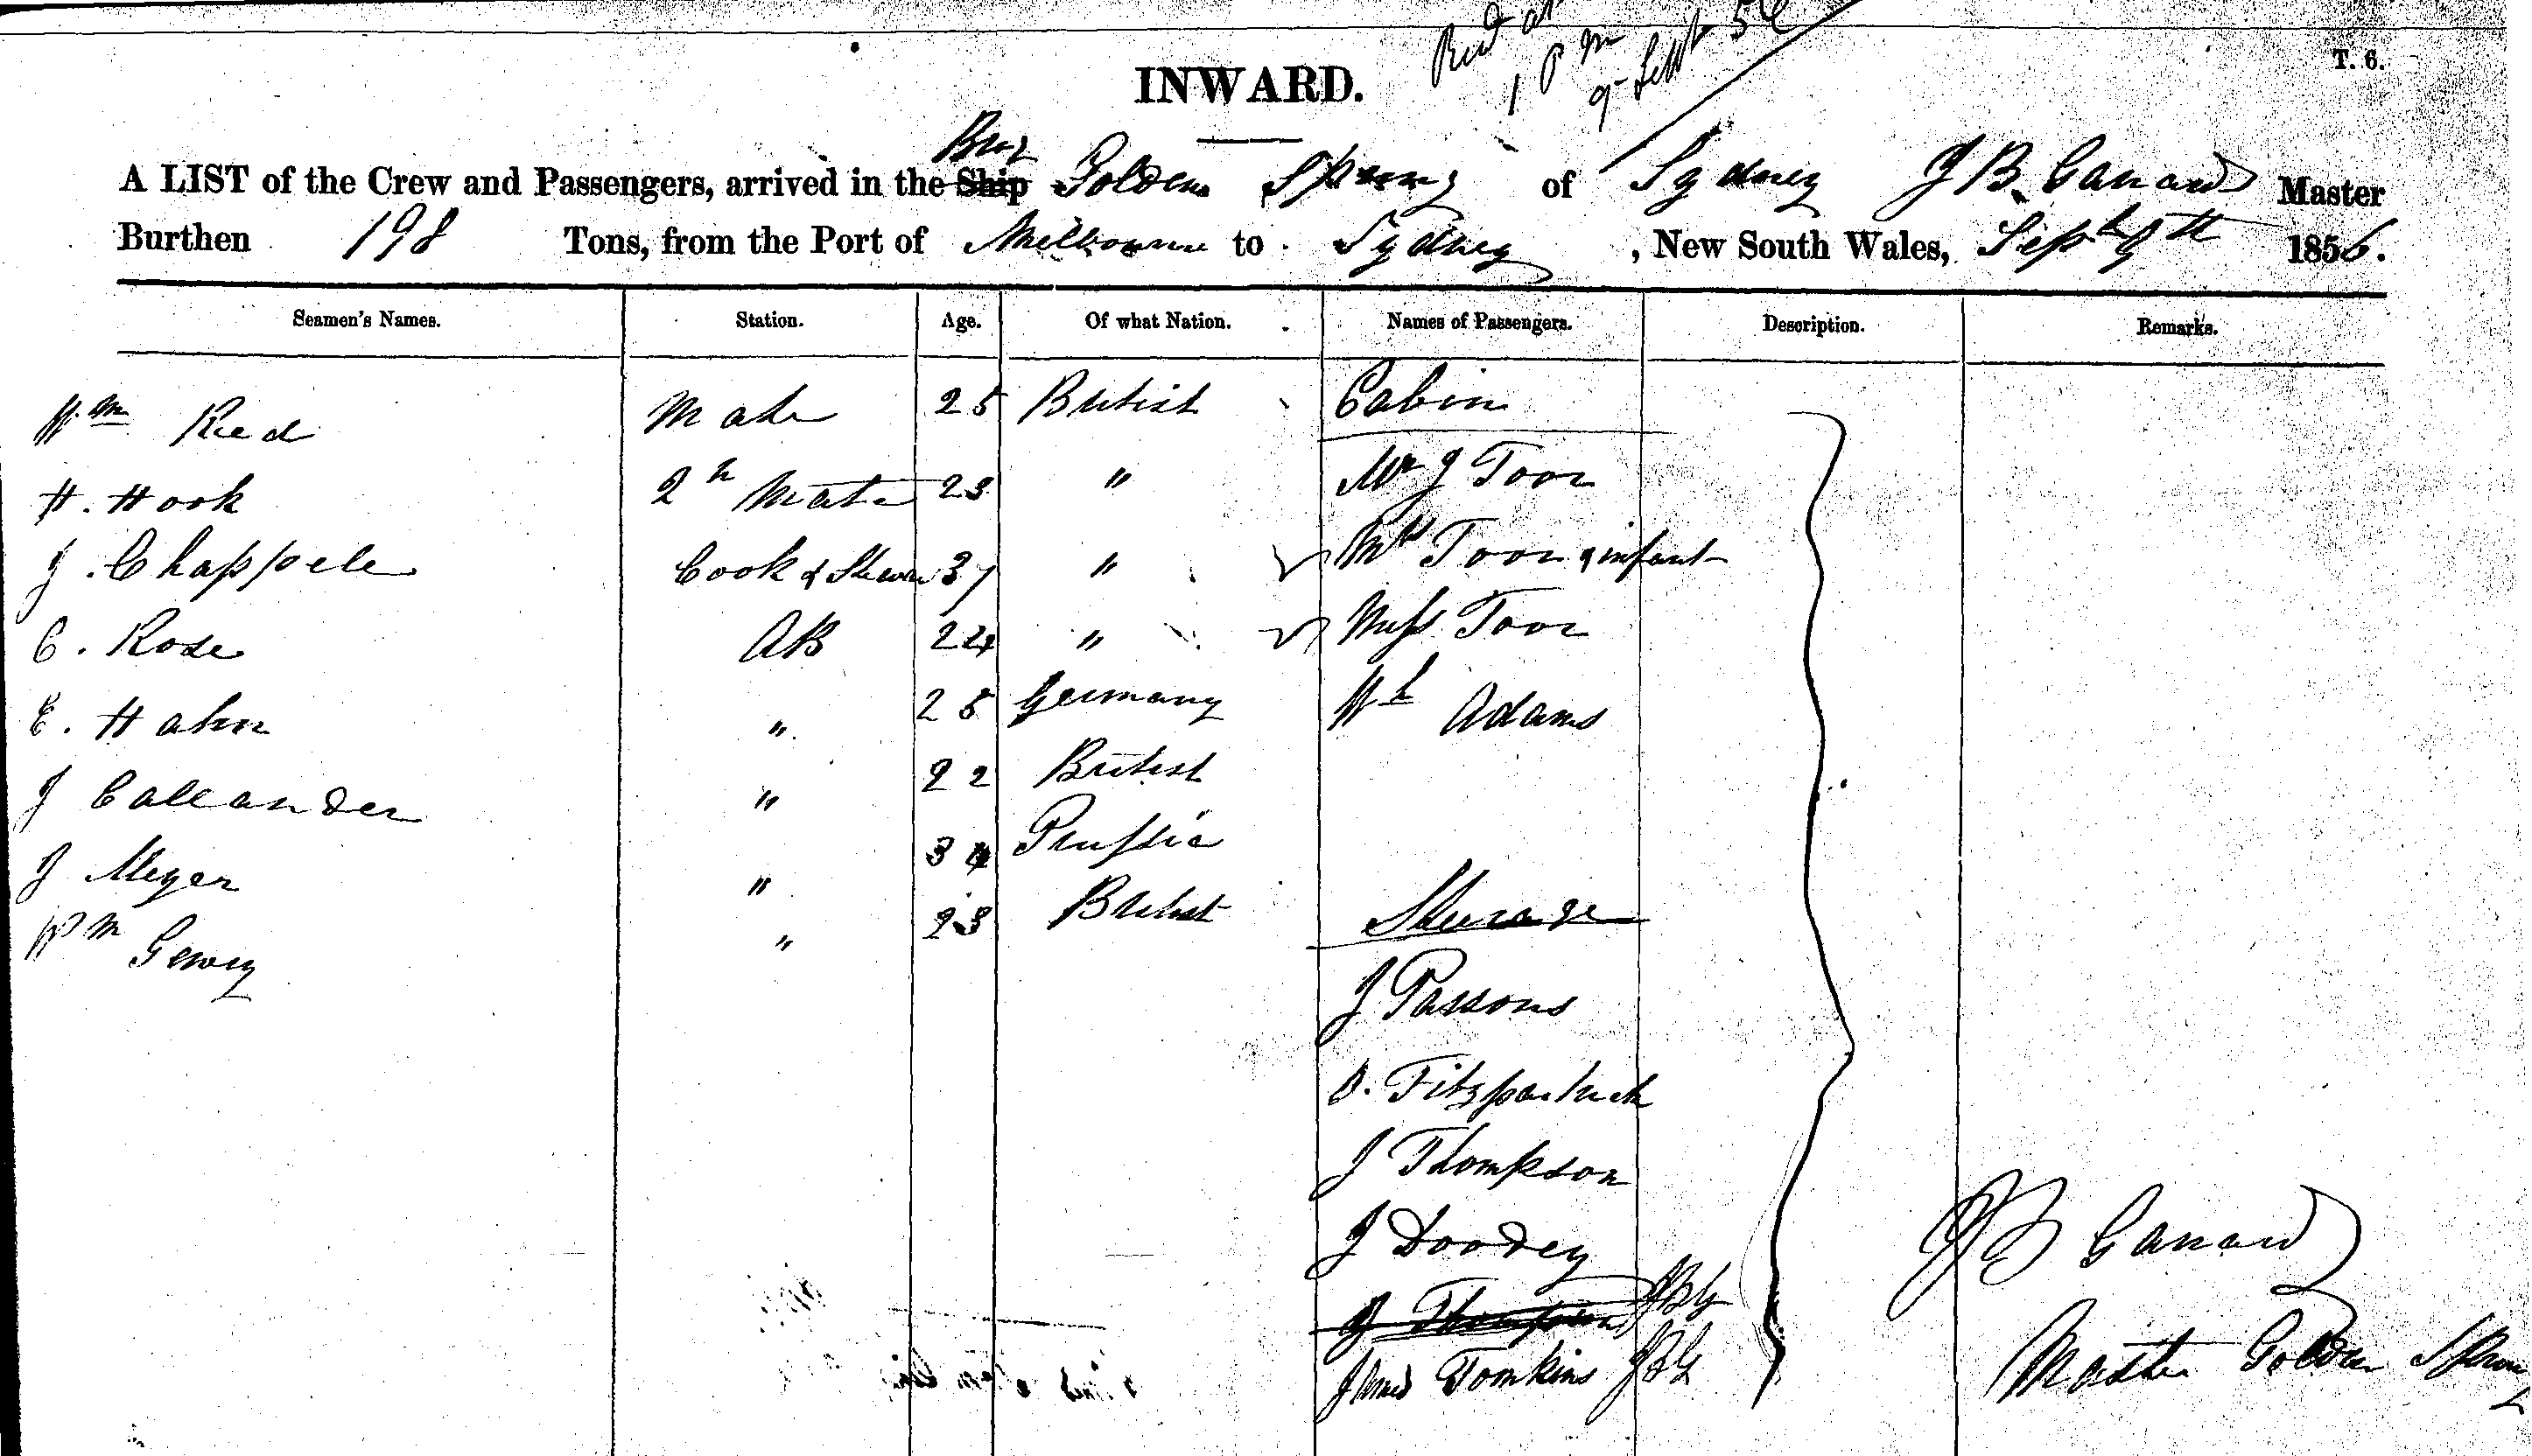 Recd at
1 P m
9 Sept 56
T. 6.
INWARD.
Brig
A LIST of the Crew and Passengers, arrived in the Ship Golden Spring of Sydney J B Garrard Master
Burthen 198 Tons, from the Port of Melbourne to Sydney, New South Wales, Sept 9th 1856.
Seamen's Names. Station. Age. Of what Nation. Names of Passengers. Description. Remarks.
Wm Reed Mate 25 British Cabin
H. Hook 2n Mate 23 " Mr J Toor
J. Chappele Cook & Stewa 37 " Mrs Toor & infant
C. Rose AB 24 " Miss Toor
E. Hahn " 25 Germany Adams
J Callander " 22 British
J Meyer " 34 Prussia
Wm " 23 British Steerage
J Parsons
Fitzpartrick
J Thompson
J Doodey
J Thompson JBG
James Tomkins JBG
J B Garrard
Master Golden Spring